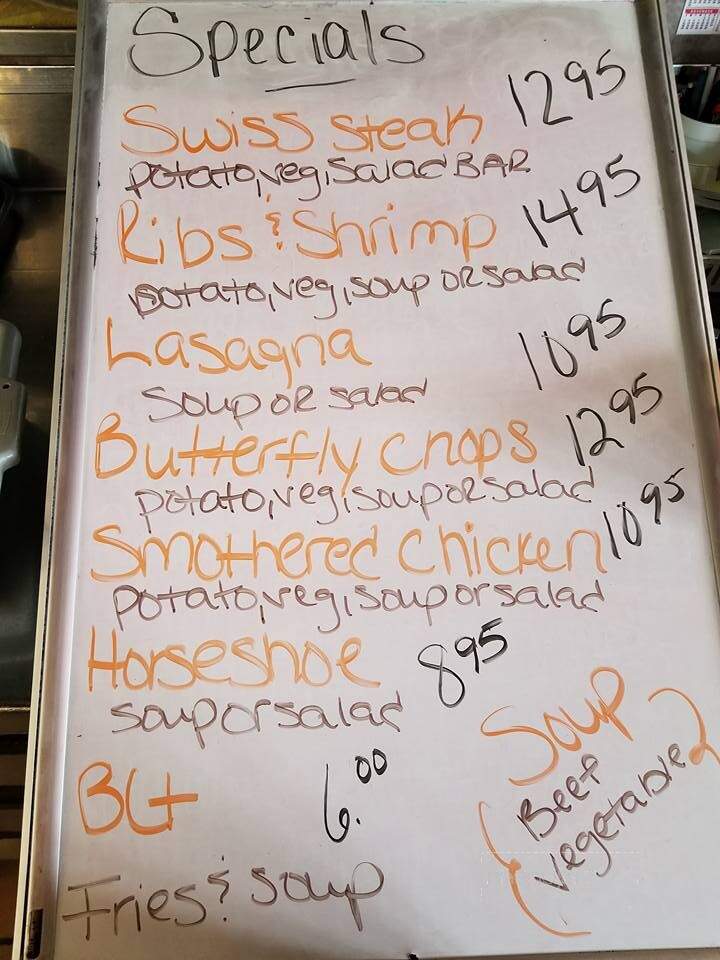 Specials
Swiss steak 12 95
potato, veg, salad BAR
Ribs & Shrimp 14 95
potato, veg, soup OR salad
Lasagna 10 95
Soup OR salad
Butterfly chops 12 95
potato, veg, soup OR salad
Smothered chicken 10 95
potato, veg, soup or salad
Horseshoe 8 95
soup or salad
BLt 6.00
Fries & soup
Soup
Beef
vegetable